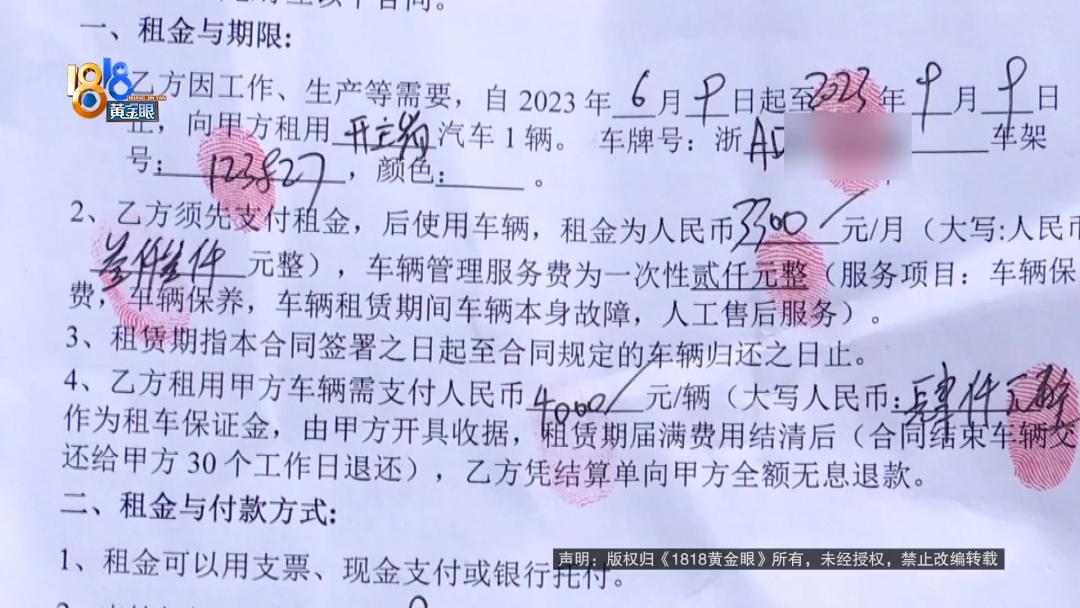 一、租金与期限:
1818
黄金眼
乙方因工作、生产等需要，自 2023 年 6 月 9 日起至 2023 年 9 月 9 日
止，向甲方租用 汽车 1 辆。 车牌号：浙 A 车架
号: 123827 ，颜色: 。
2、乙方须先支付租金，后使用车辆，租金为人民币 3300 元/月（大写:人民币
叁仟叁佰 元整），车辆管理服务费为一次性贰仟元整（服务项目：车辆保
费，车辆保养，车辆租赁期间车辆本身故障，人工售后服务）。
3、租赁期指本合同签署之日起至合同规定的车辆归还之日止。
4、乙方租用甲方车辆需支付人民币 4000 元/辆（大写人民币: 肆仟元整
作为租车保证金，由甲方开具收据，租赁期届满费用结清后（合同结束车辆交
还给甲方 30 个工作日退还），乙方凭结算单向甲方全额无息退款。
二、租金与付款方式:
1、租金可以用支票、现金支付或银行托付。
声明：版权归《1818黄金眼》所有，未经授权，禁止改编转载